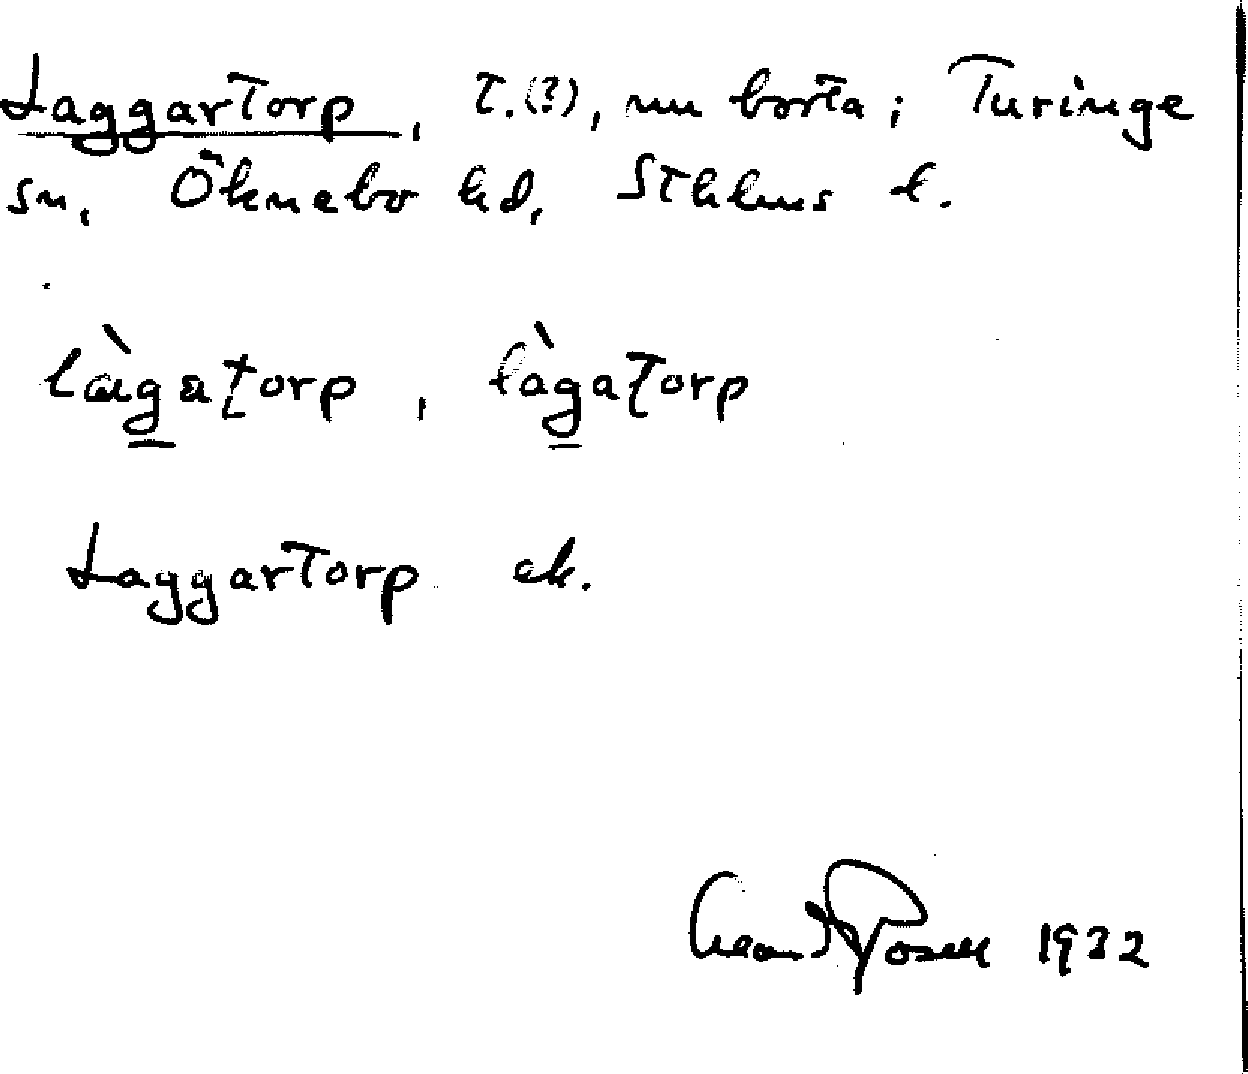 Laggartorp, t.(?), nu borta; Turinge
sn, Öknebo hd, Sthlms l.
lægatorp, làgatorp
Laggartorp ek.
1932